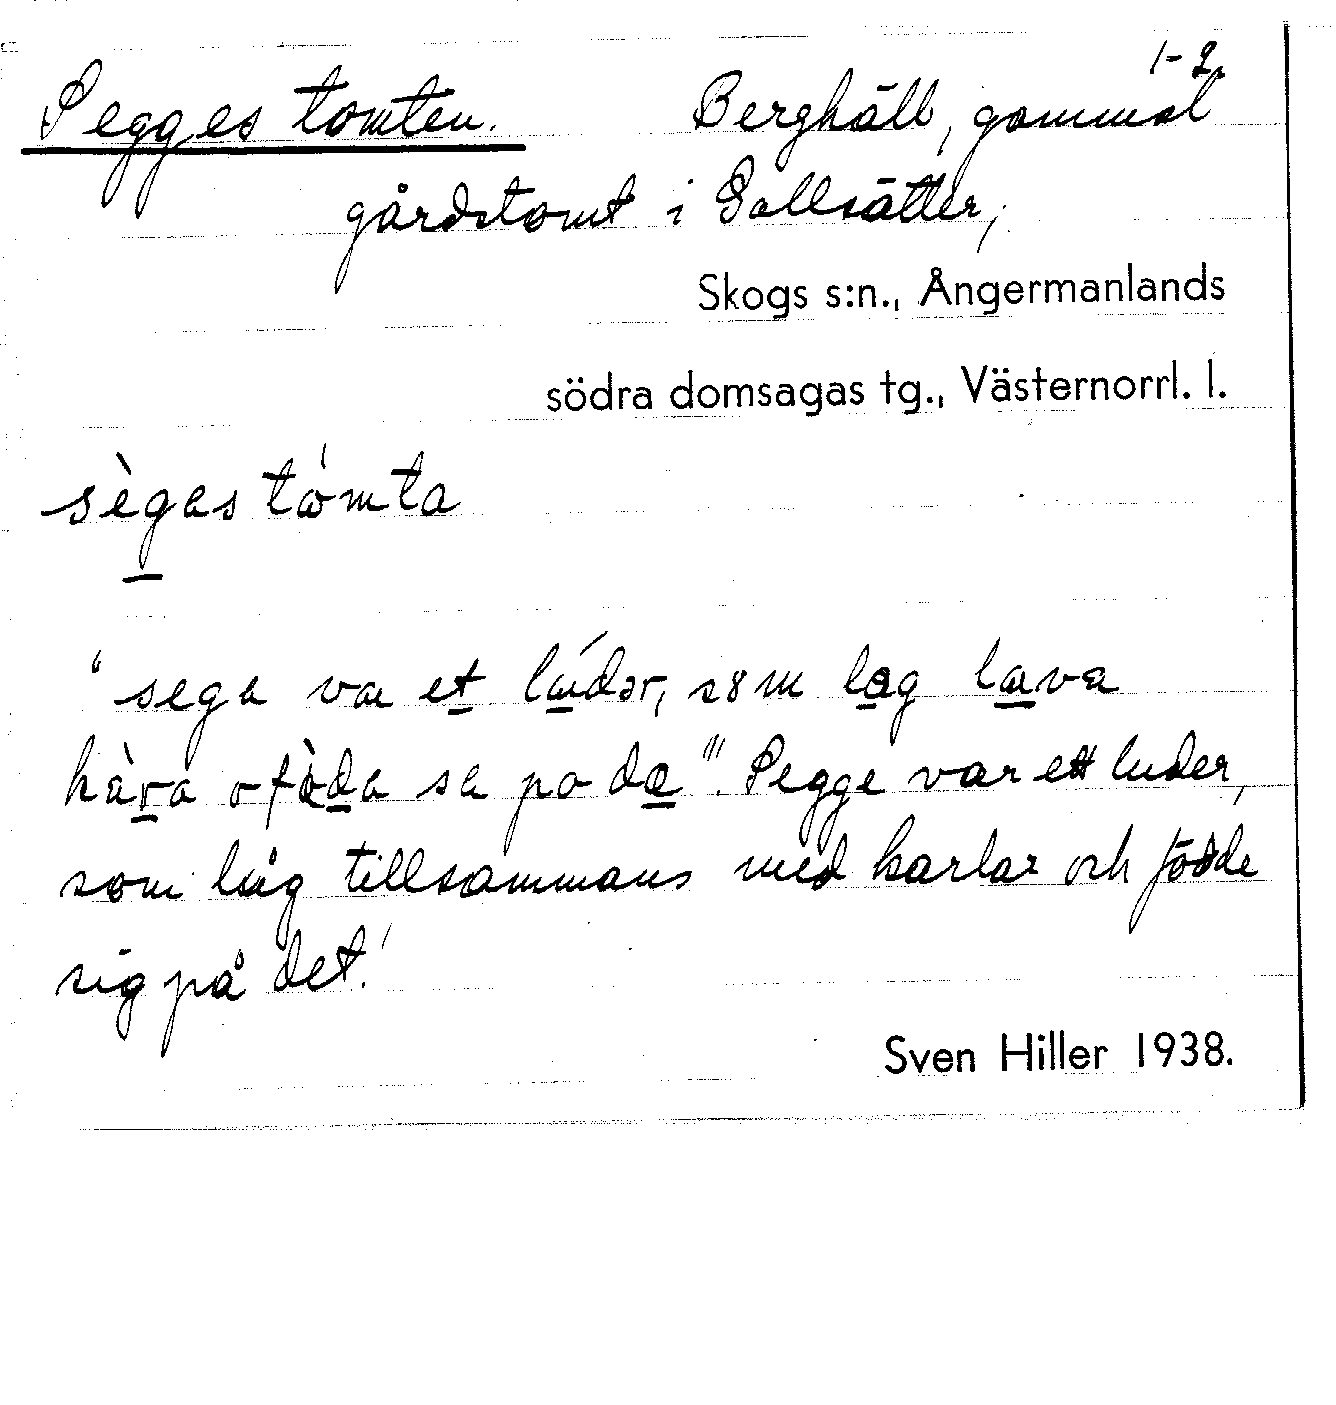 1-2.
Segges tomten. Berghäll, gammal
gårdstomt i Gallsätter,
Skogs s:n., Ångermanlands
södra domsagas tg., Västernorrl. l.
sègas tómta
"sega va et lúdər, sɷm lag lava
kàra o fø̀da sa po da". Segge var ett luder,
som låg tillsammans med karlar och födde
sig på det.'
Sven Hiller 1938.